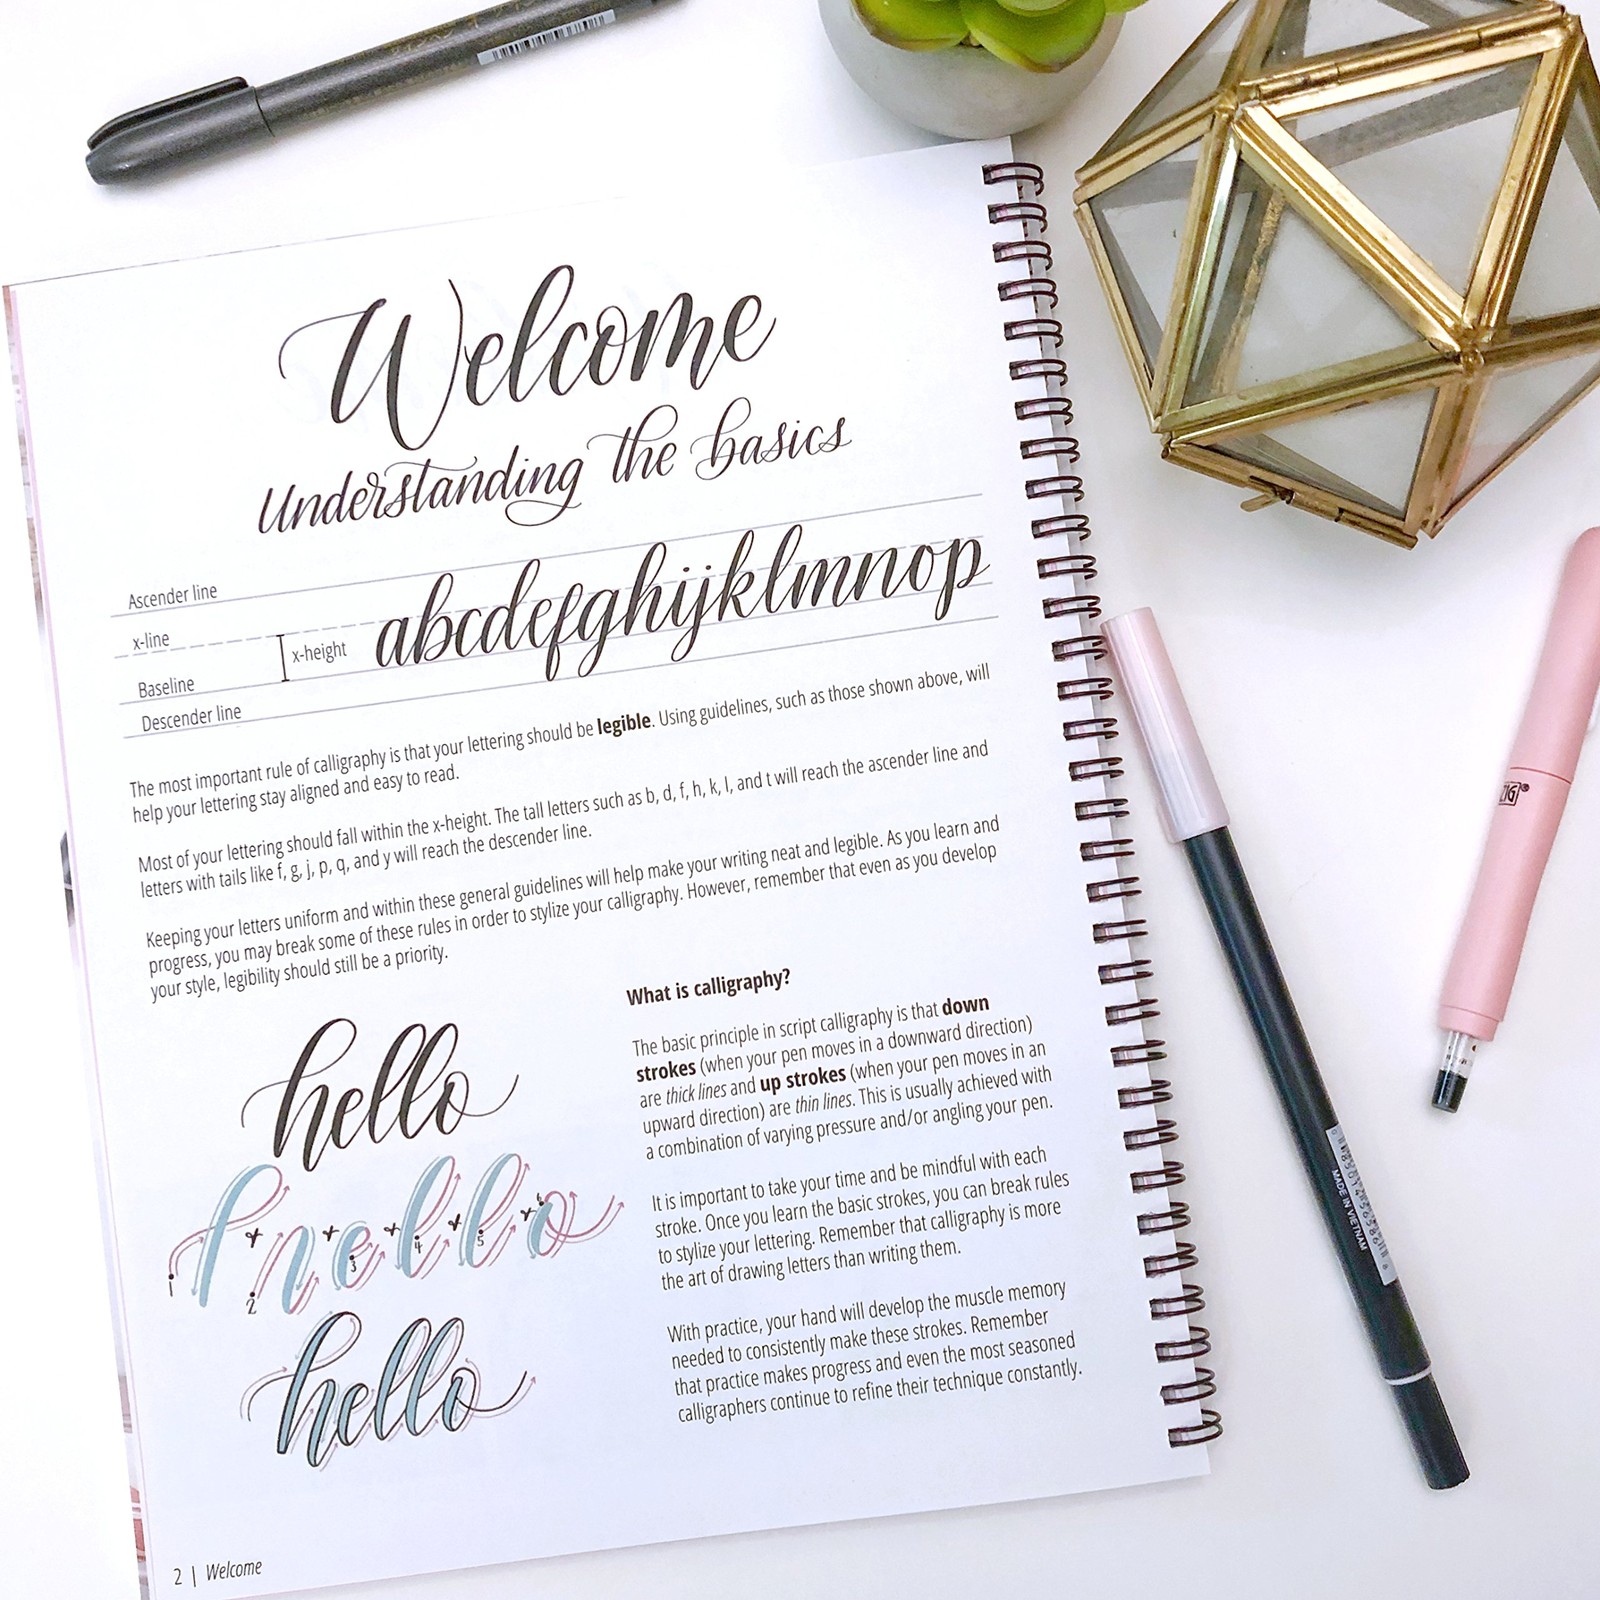 Welcome
Understanding the basics
Ascender line
x-line
x-height
Baseline
Descender line
abcdefghijklmnop
The most important rule of calligraphy is that your lettering should be legible. Using guidelines, such as those shown above, will
help your lettering stay aligned and easy to read.
Most of your lettering should fall within the x-height. The tall letters such as b, d, f, h, k, l, and t will reach the ascender line and
letters with tails like f, g, j, p, q, and y will reach the descender line.
Keeping your letters uniform and within these general guidelines will help make your writing neat and legible. As you learn and
progress, you may break some of these rules in order to stylize your calligraphy. However, remember that even as you develop
your style, legibility should still be a priority.
hello
hello
1 2 3 4 5 6
hello
What is calligraphy?
The basic principle in script calligraphy is that down
strokes (when your pen moves in a downward direction)
are thick lines and up strokes (when your pen moves in an
upward direction) are thin lines. This is usually achieved with
a combination of varying pressure and/or angling your pen.
It is important to take your time and be mindful with each
stroke. Once you learn the basic strokes, you can break rules
to stylize your lettering. Remember that calligraphy is more
the art of drawing letters than writing them.
With practice, your hand will develop the muscle memory
needed to consistently make these strokes. Remember
that practice makes progress and even the most seasoned
calligraphers continue to refine their technique constantly.
2 | Welcome
ZIG®
MADE IN VIETNAM